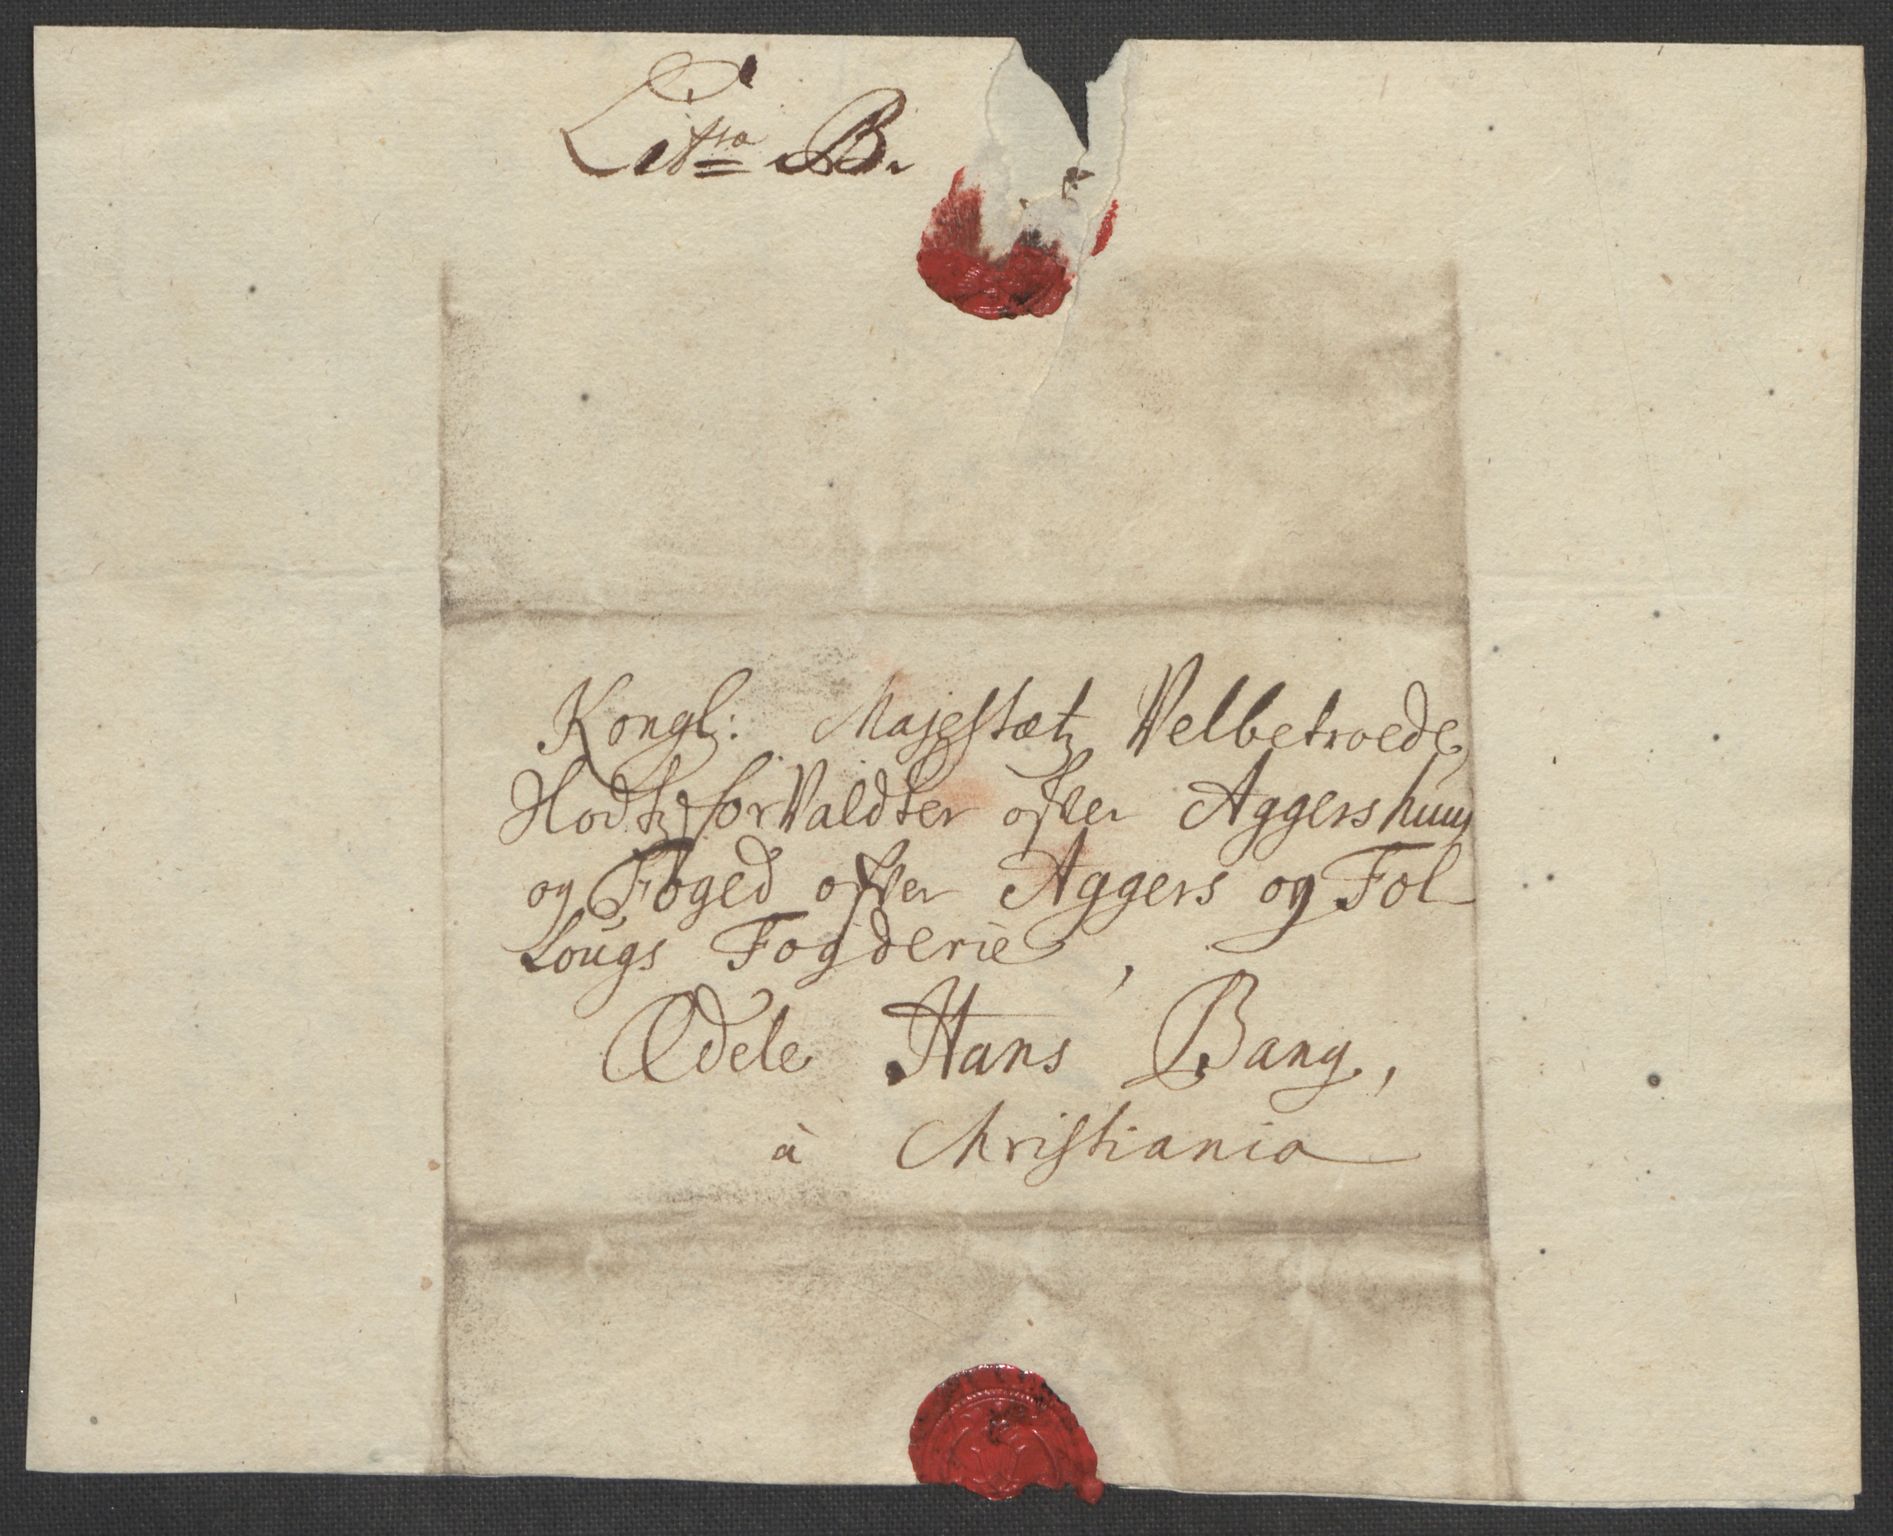 Littra B.
Kongl: Majestætz Velbetroede
Slodtz forValdter ofver Aggershuus
og Foged ofver Aggers og Fol
lougs Fogderie,
Ædele Hans Bang,
à Christiania